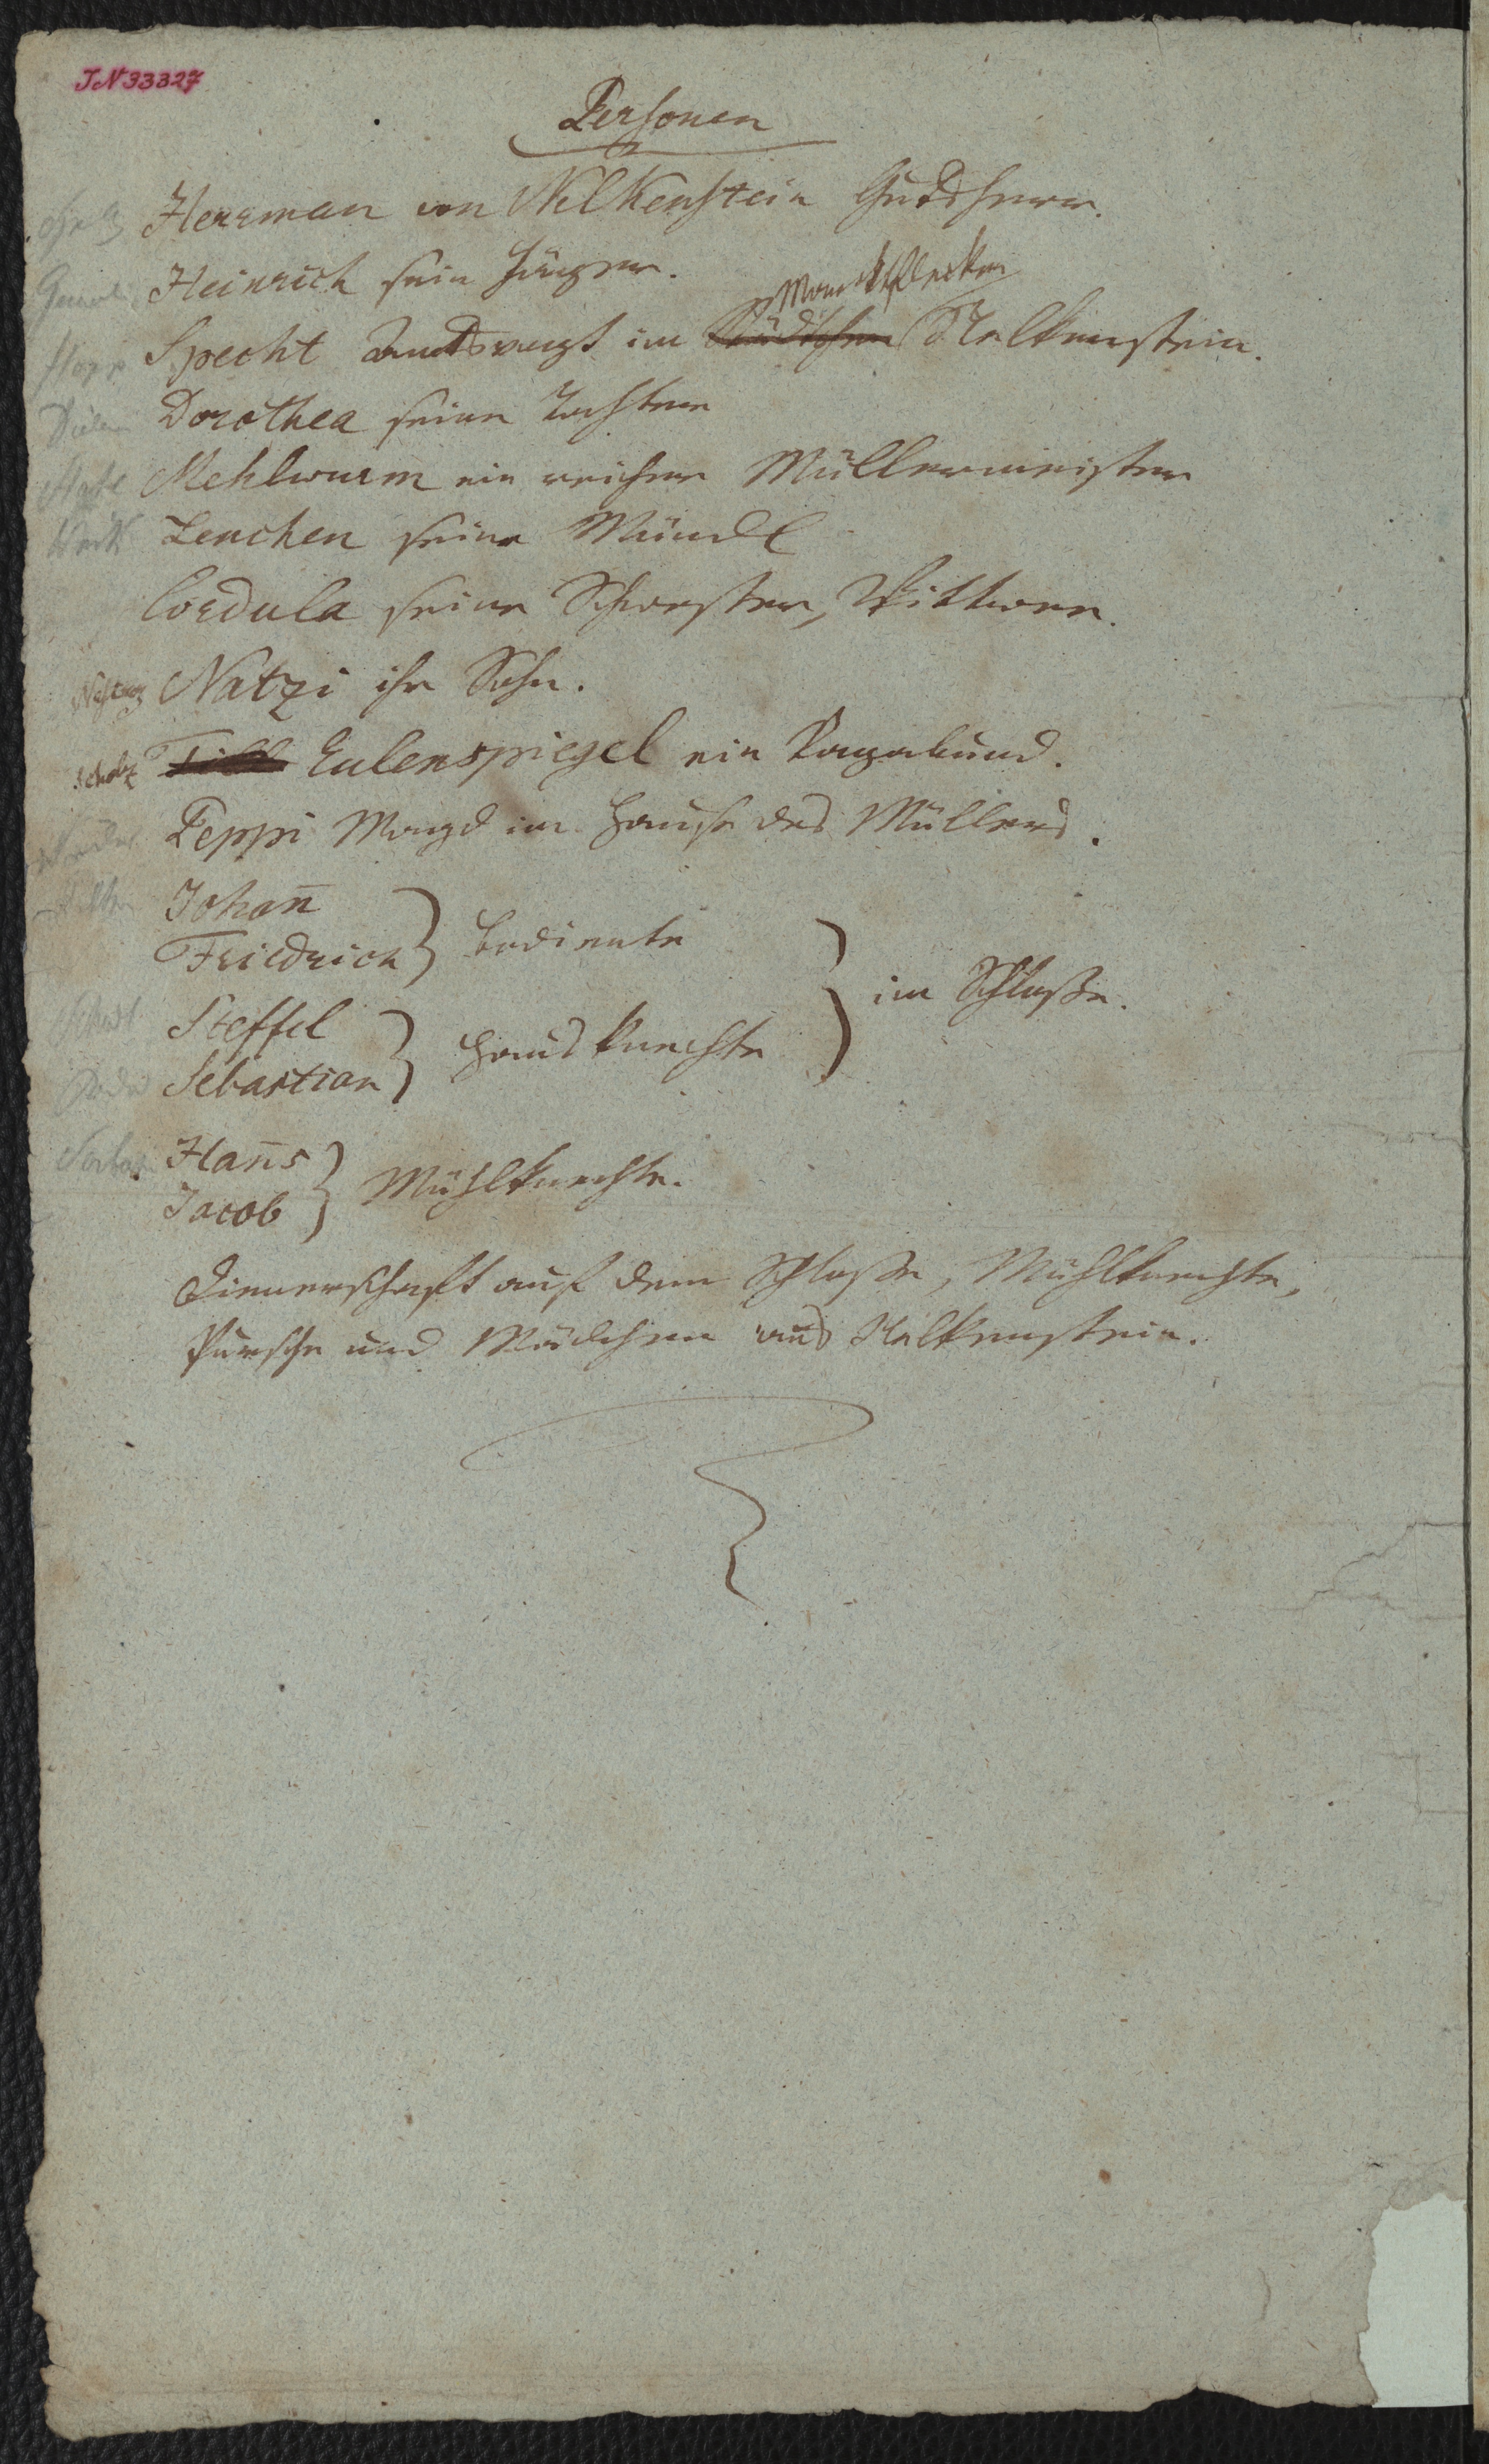 JN 33327
Personen
Herrman von Nelkenstein Gutsherr.
Heinrich sein Jäger.
Marktflecken
Specht Amtsvogt im Städtchen Nelkenstein.
Dorothea seine Tochter
Mehlwurm ein reicher Müllermeister
Lenchen seine Mündl
Cordula seine Schwester, Wittwe.
Natzi ihr Sohn.
Scholz Till Eulenspiegel ein Vagabund.
Peppi Magd im Hause des Müllers.
Johan̄
Friedrich } Bediente
Steffel
Sebastian } Hausknechte } im Schloße.
Han̄s
Jacob } Mühlknechte.
Dienerschaft auf dem Schloße, Mühlknechte,
Pursche und Mädchen aus Nelkenstein.